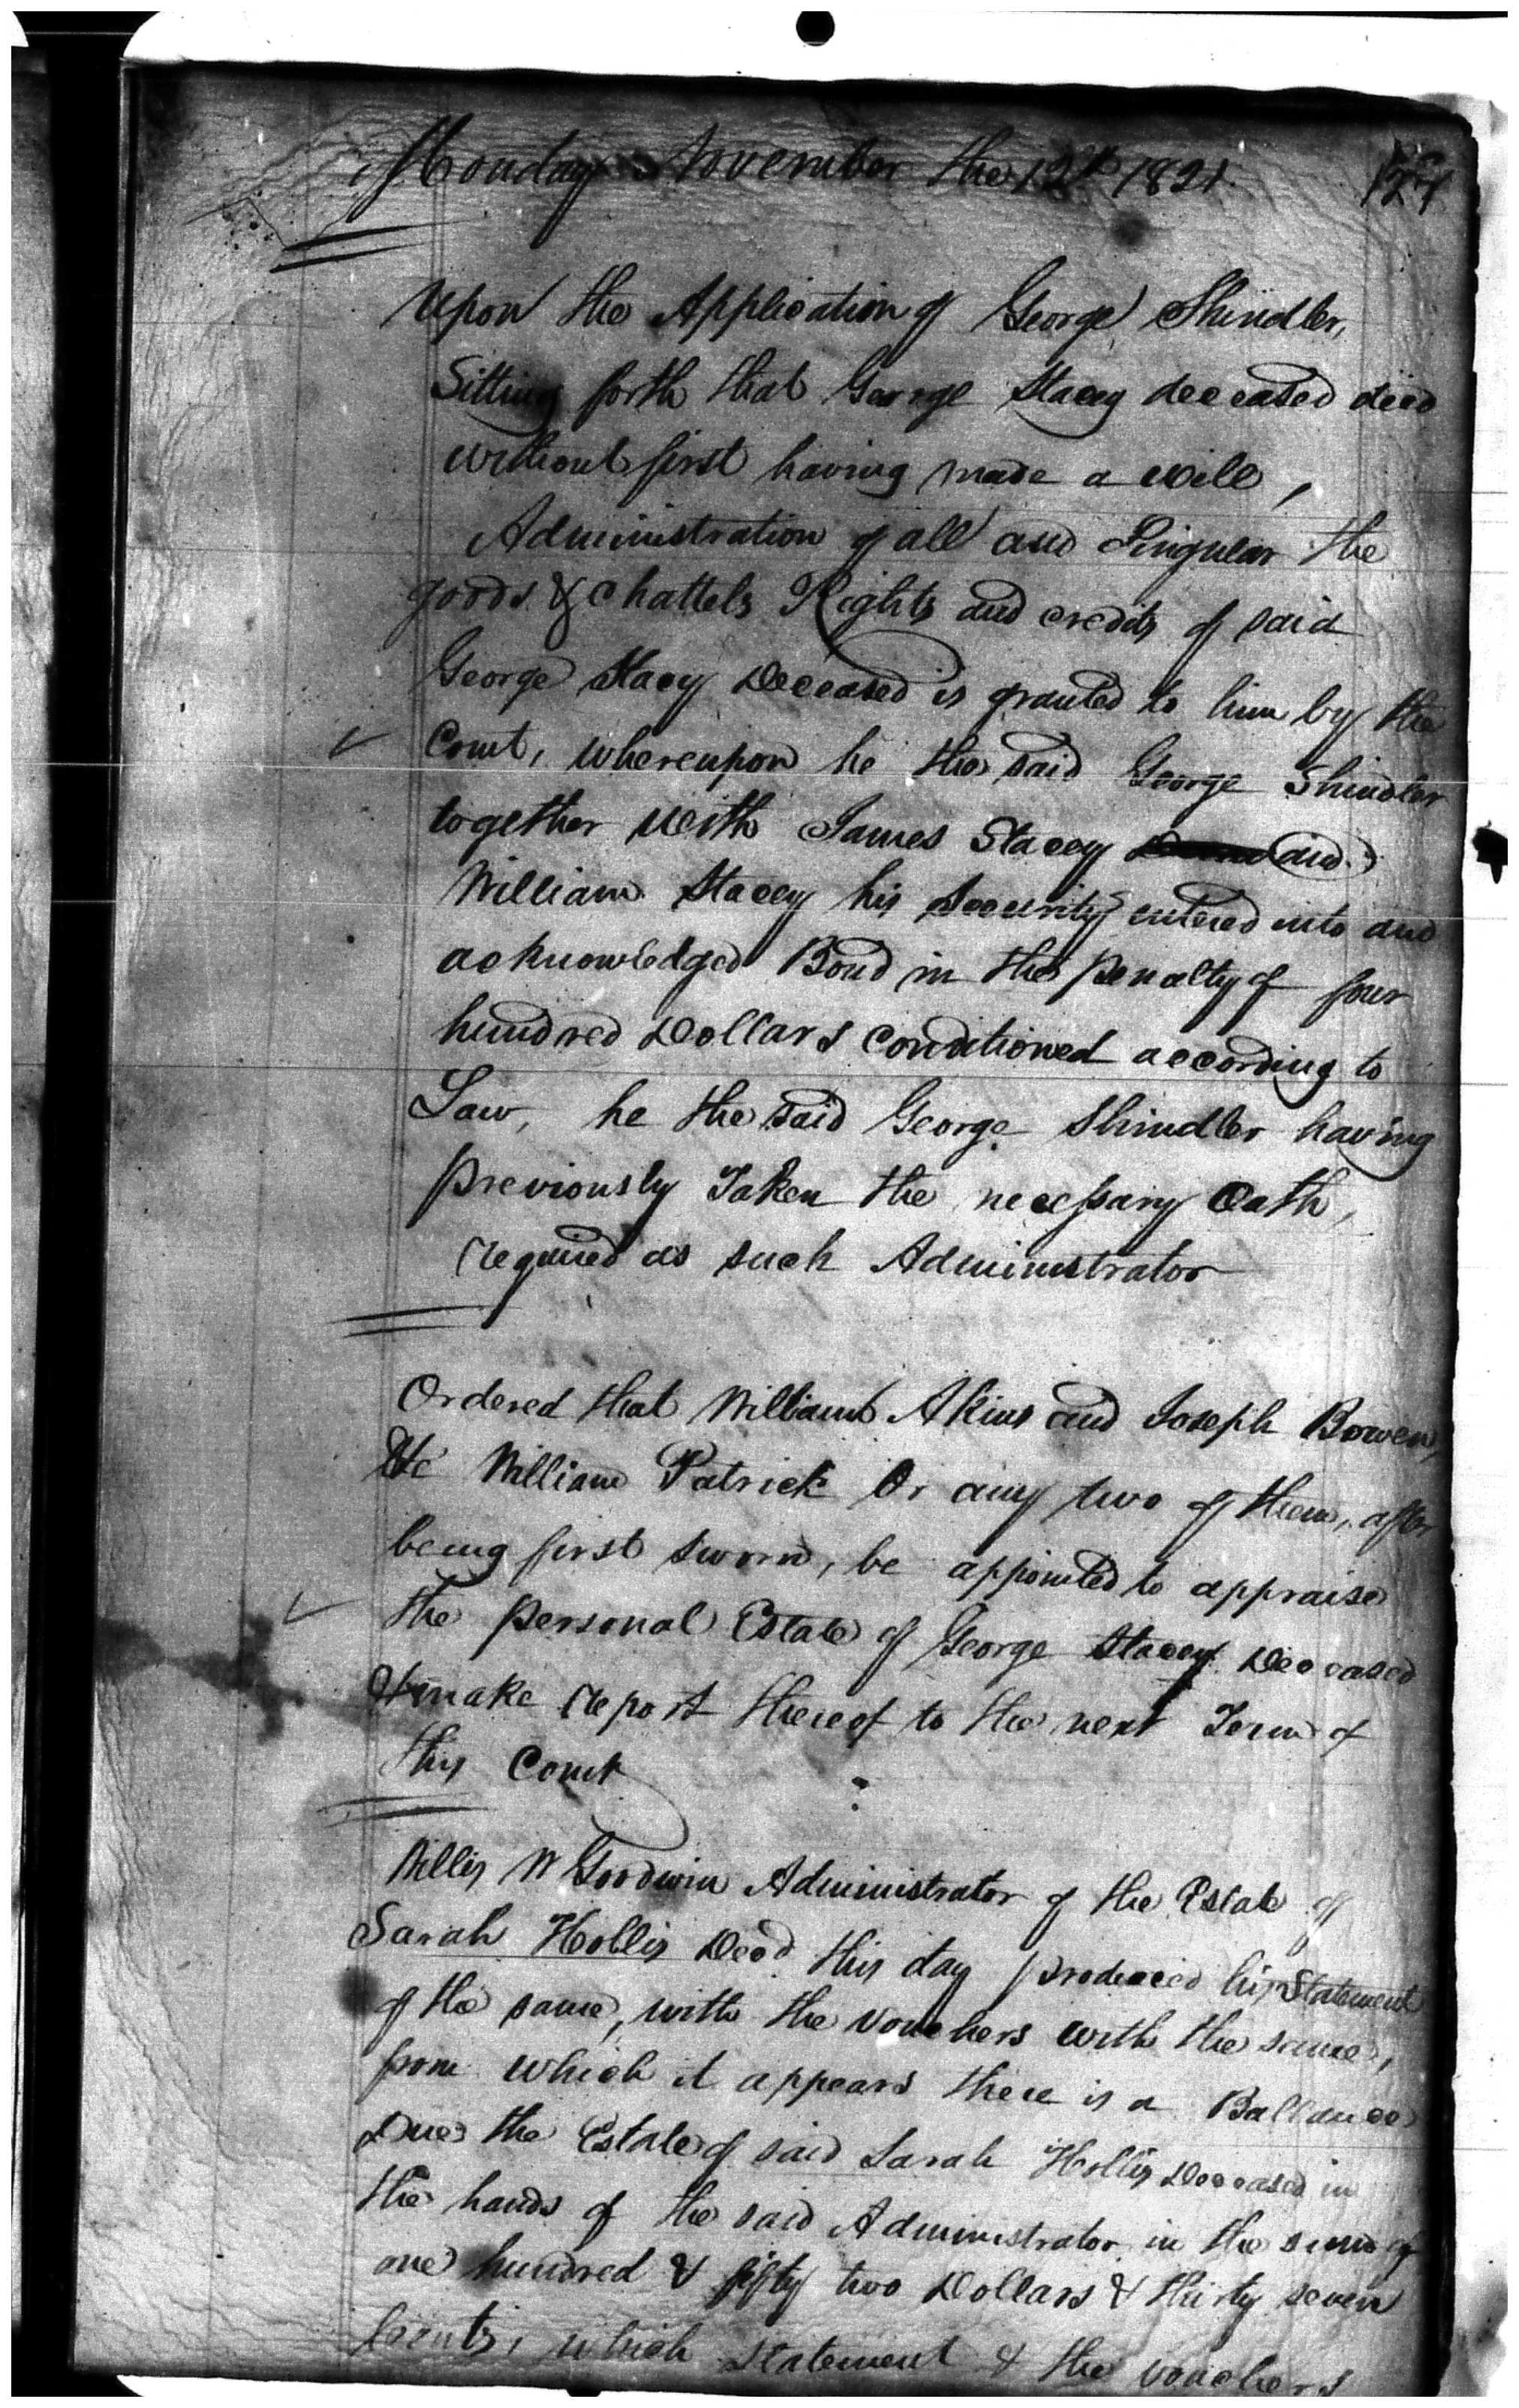 Monday November the 12th 1821. 127
Upon the Application of George Shindler,
Sitting forth that George Stacey deceased died
without first having made a will,
Administration of all and Singular the
goods & chattels Rights and credits of said
George Stacy Deceased is granted to him by the
Court, whereupon he the said George Shindler
together with James Stacey and
William Stacey his Security entered into and
acknowledged Bond in the penalty of four
hundred Dollars conditioned according to
Law, he the said George Shindler having
previously Taken the necessary Oath,
required as such Administrator
Ordered that William Akins and Joseph Bowen,
William Patrick Or any two of them, after
being first sworn, be appointed to appraise
the personal Estate of George Stacey Deceased
& make report thereof to the next Term of
this Court
Willis W Goodwin Administrator of the Estate of
Sarah Hollis Decd this day produced his Statement
of the same, with the vouchers with the same,
from which it appears there is a Ballance
Due the Estate of said Sarah Hollis Deceased in
the hands of the said Administrator in the sum of
one hundred & fifty two Dollars & thirty seven
Cents, which Statement & the vouchers